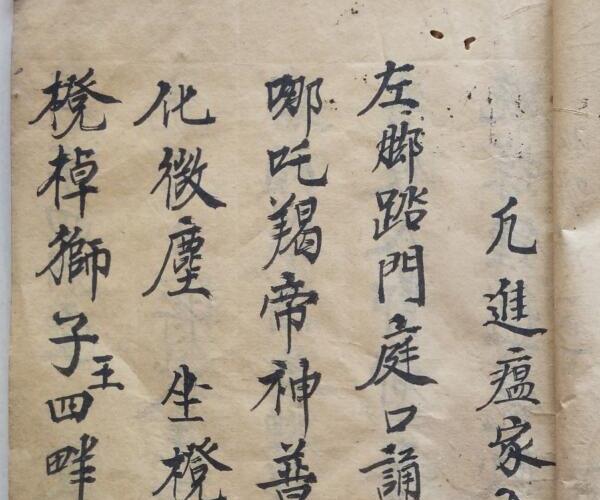 凢進瘟家
左脚踏門庭口誦
哪吒羯帝神普
化微塵 坐櫈
櫈棹獅子王四畔